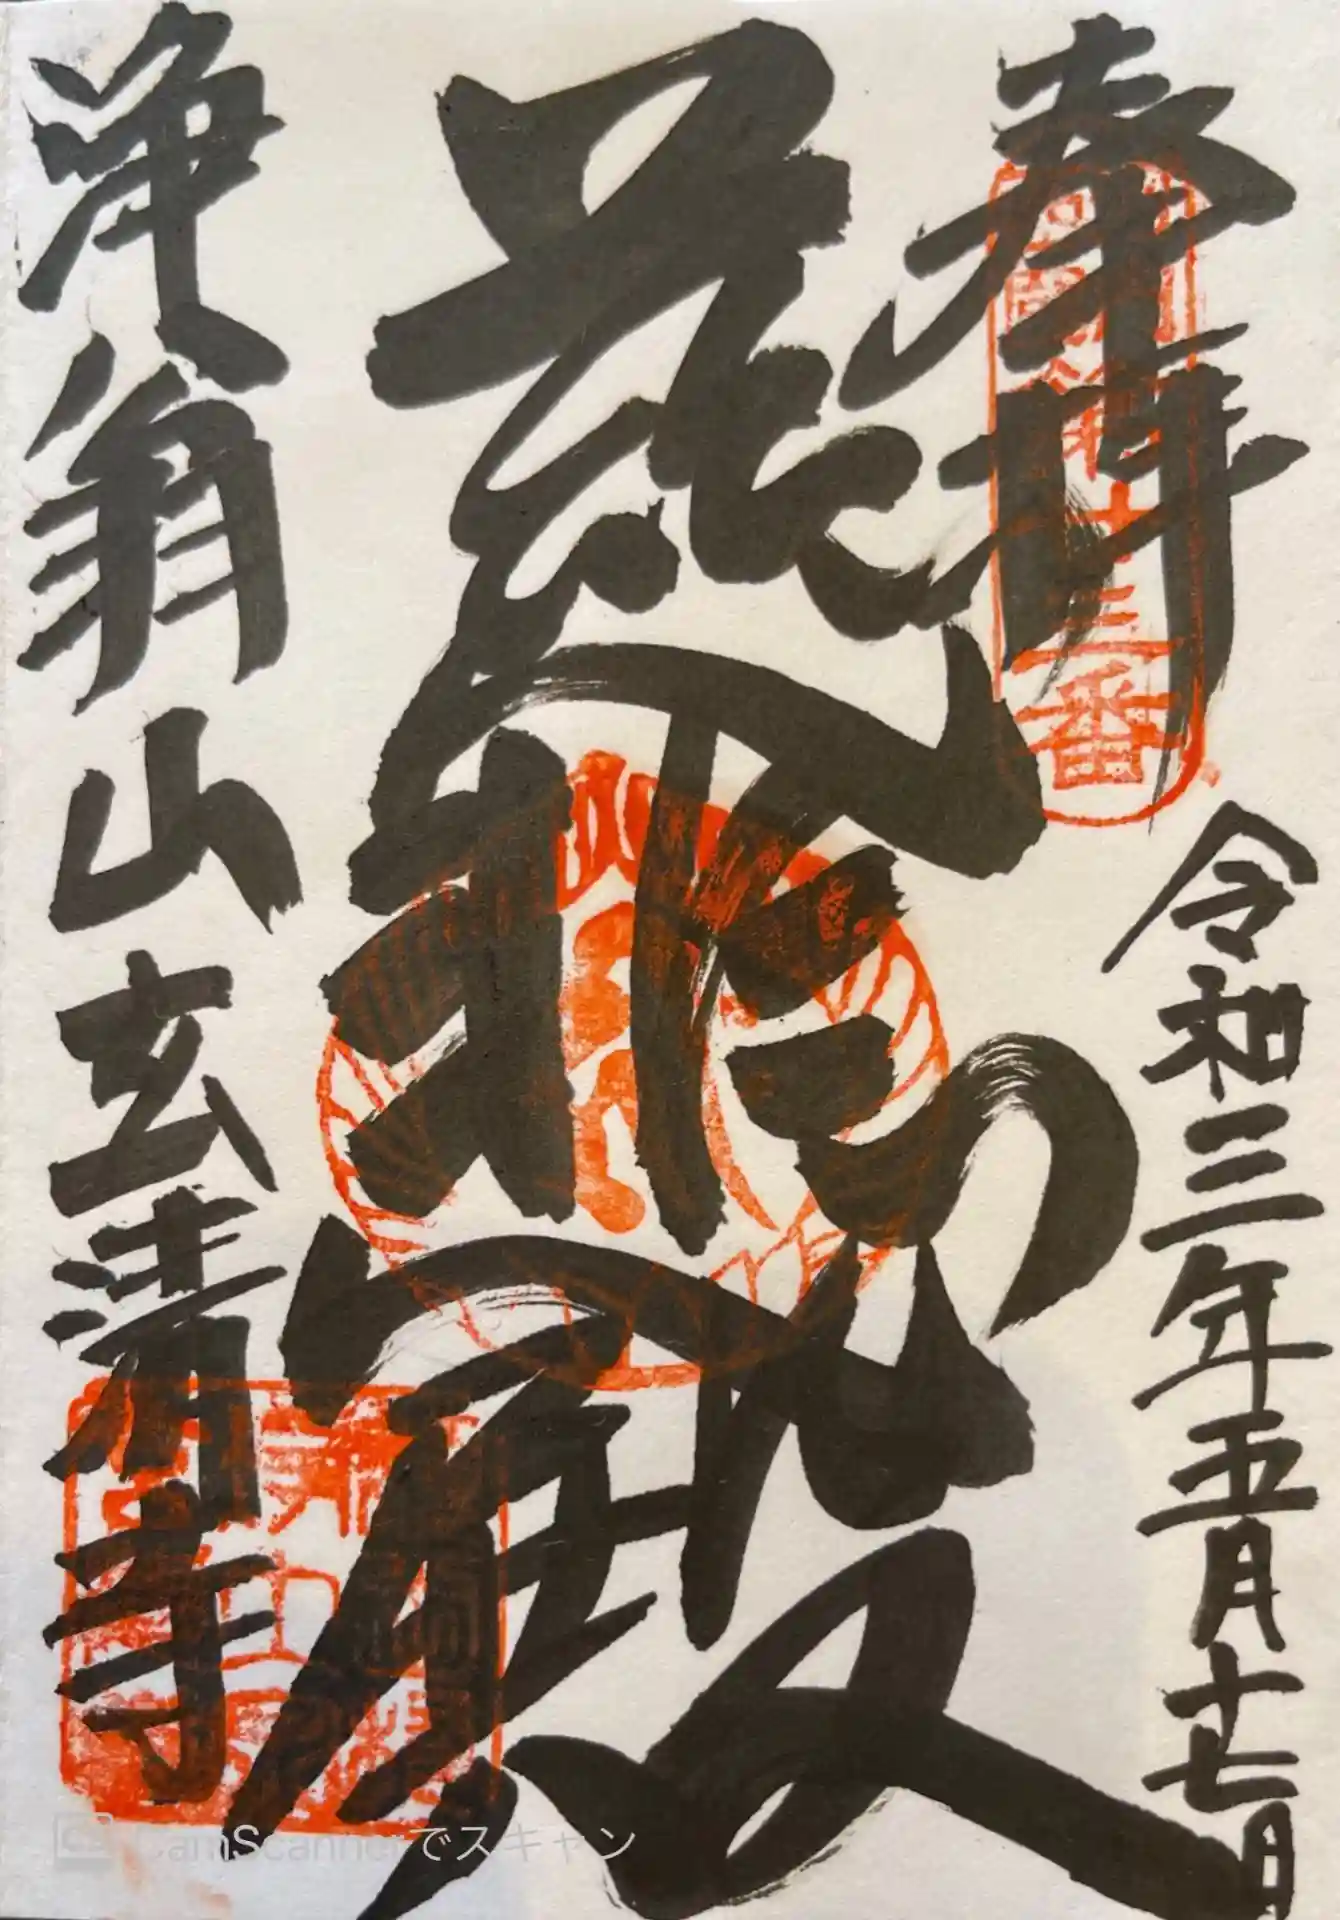 奉拝
十三番
令和三年五月十七日
慈悲殿
浄翁山玄清寺
CamScannerでスキャン